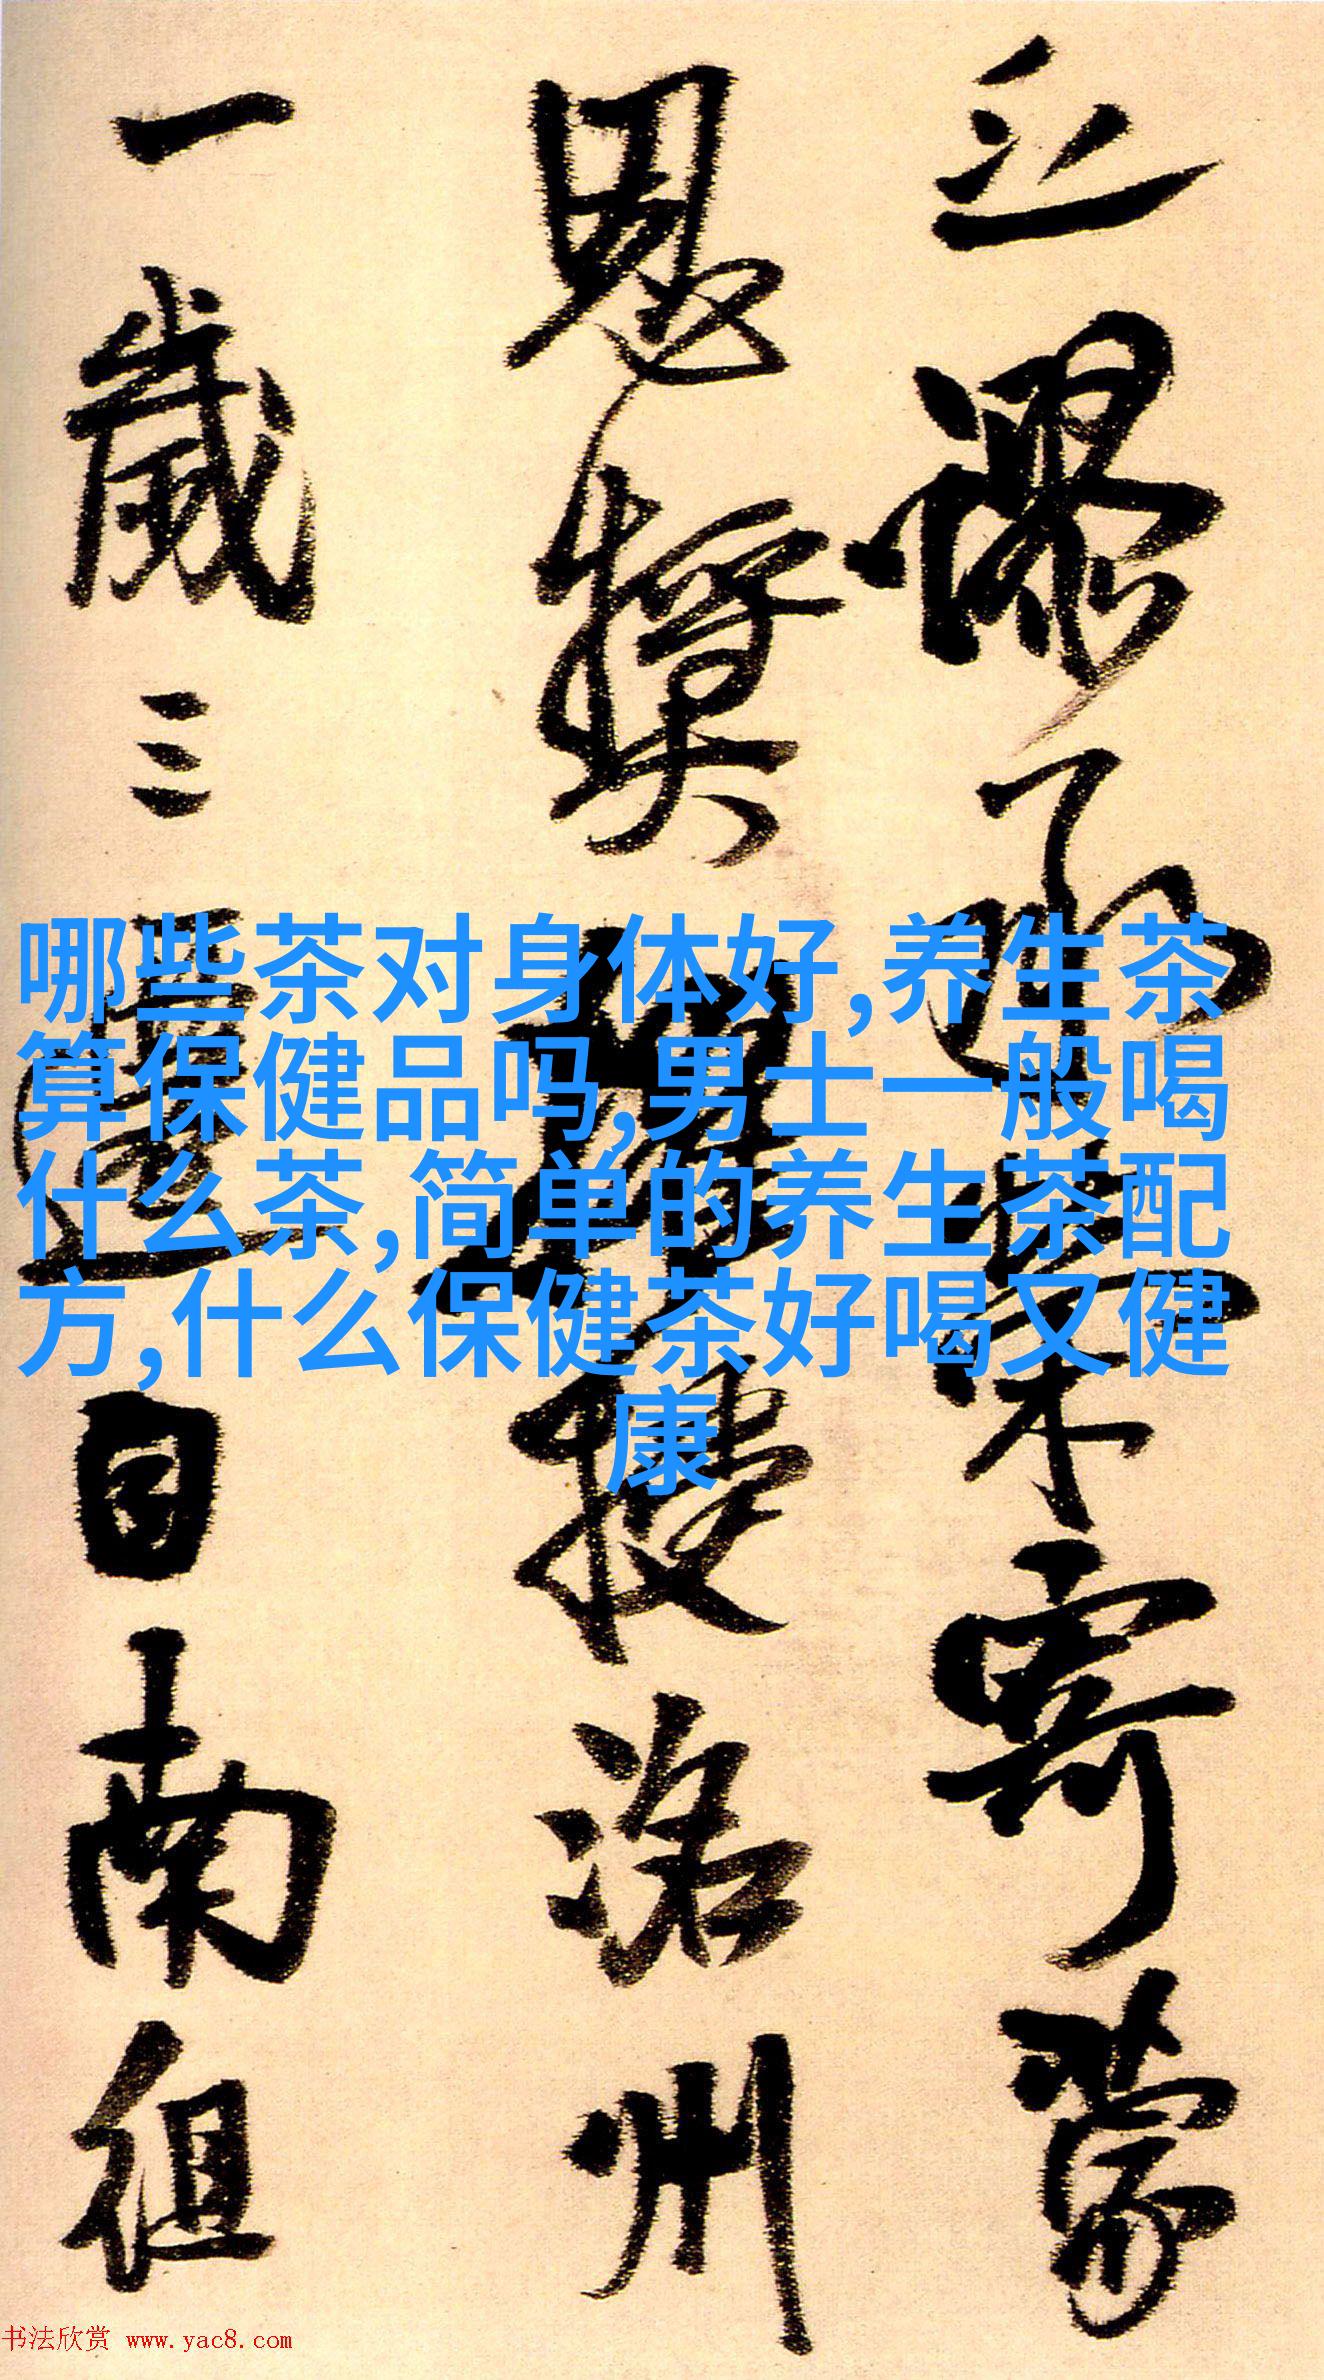 立謬承榮寄蒙
恩獎擢授洛州
一歲三遷自南徂
哪些茶对身体好,养生茶
算保健品吗,男士一般喝
什么茶,简单的养生茶配
方,什么保健茶好喝又健
康
书法欣赏 www.yac8.com